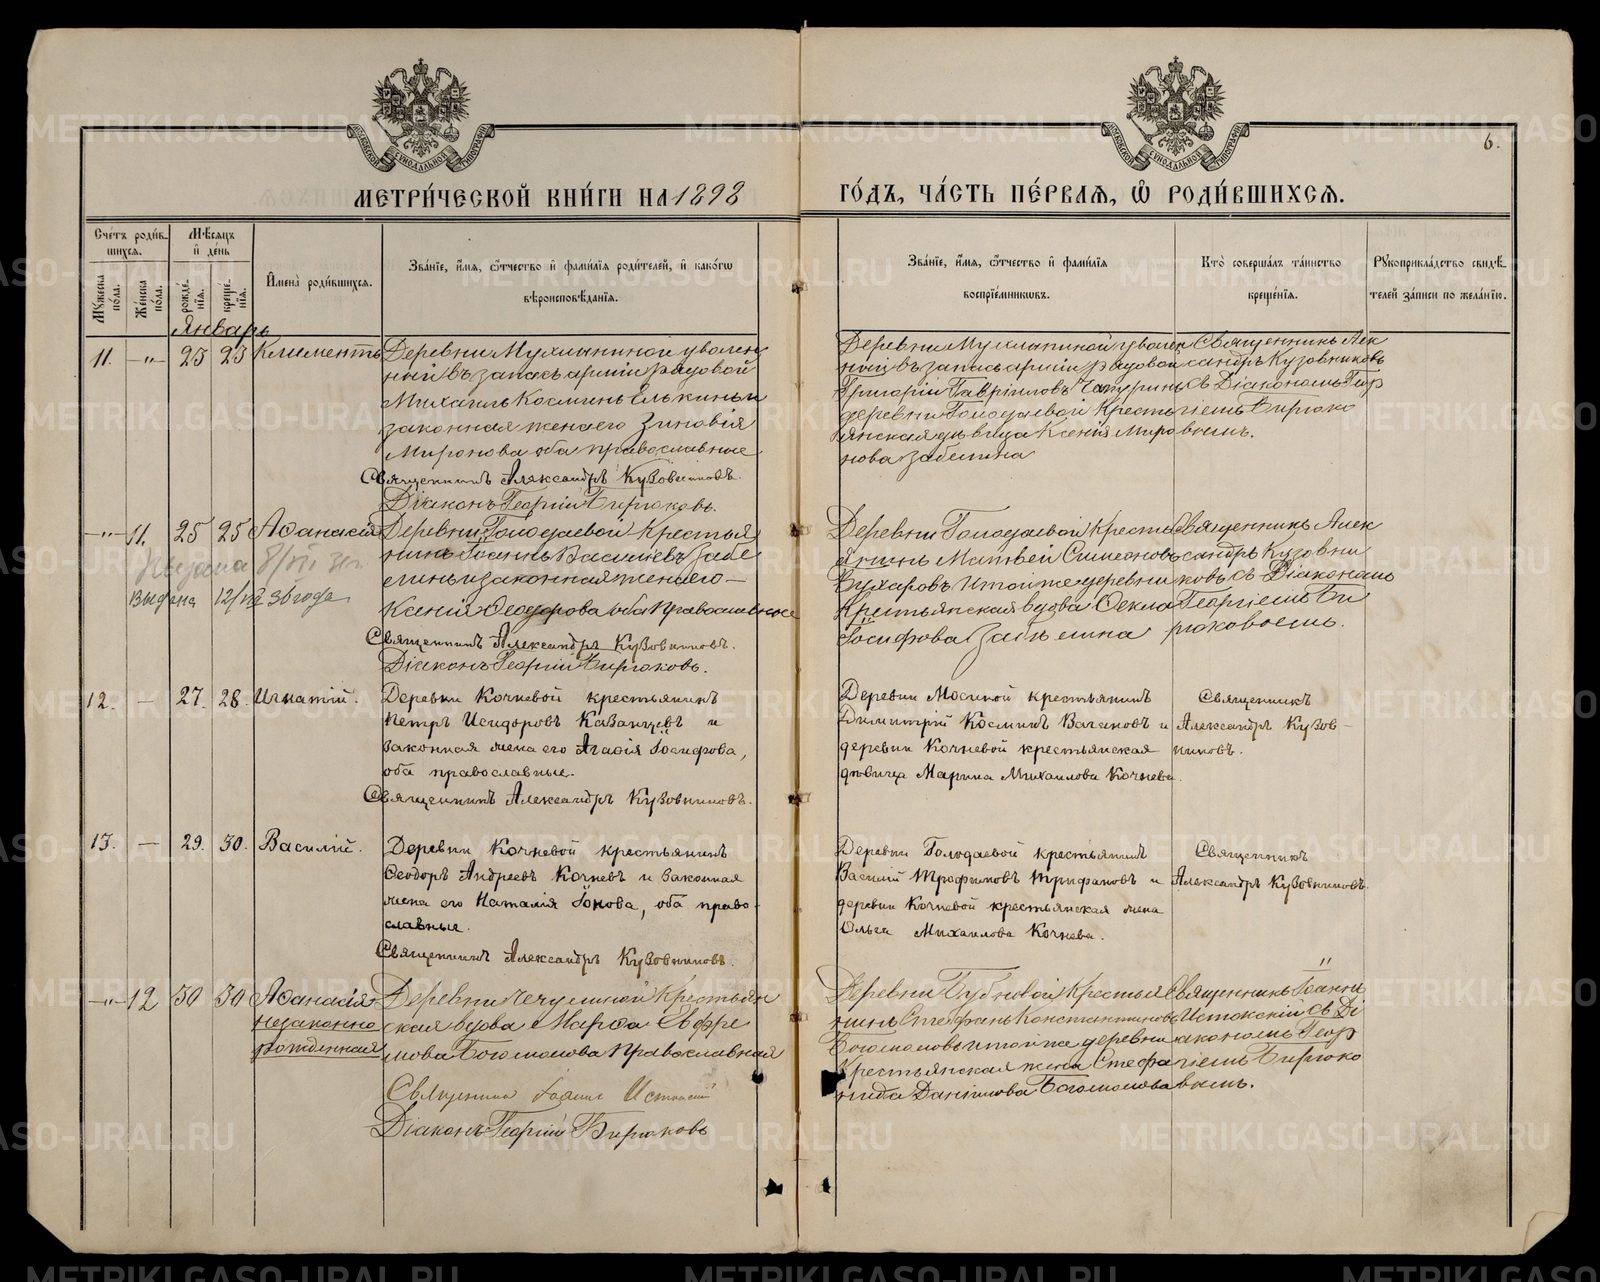 МЕТРИ́ЧЕСКОЙ КНИ́ГИ НА 1898
ГО́ДЪ, ЧА́СТЬ ПЕ́РВАЯ, Ѡ҆ РОДИ́ВШИХСЯ.
6.
Сче́тъ роди́в-
шихся.
Мꙋжеска по́ла.
Же́нска по́ла.
Мѣ́сяцъ
и҆ де́нь
рожде́нїя.
креще́нїя.
И҆мена̀ роди́вшихся.
Зва́нїе, и҆́мя, ѻ҆́тчество и҆ фами́лїя роди́телей, и҆ како́гѡ
вѣроисповѣ́данїя.
Зва́нїе, и҆́мя, ѻ҆́тчество и҆ фами́лїя
воспрїе́мниковъ.
Кто̀ соверша́лъ та́инство
креще́нїя.
Рꙋкоприкла́дство свидѣ́-
телей за́писи по жела́нїю.
Январь
11. —„— 23 23 Климентъ
Деревни Мухлыниной уволен
ный въ запасъ арміи рядовой
Михаилъ Космин Елькинъ и
законная жена его Зиновія
Миронова оба православные
Священникъ Александръ Кузовниковъ.
Діаконъ Георгій Бирюковъ.
Деревни Мухлыниной уволен
ный въ запасъ арміи рядовой
Григорій Гавріиловъ
деревни Голодаевой Кресть
янская дѣвица Ксенія Миро
нова Забелина
Священникъ Алек
сандръ Кузовниковъ
съ Діакономъ Геор
гіемъ Бирюко
вымъ.
—„— 11. 25 25 Аѳанасія
Выдана 12/ 36 года
Деревни Голодаевой Крестья
нинъ Іоаннъ Васильевъ Забе
линъ и законная жена его —
Ксенія Ѳеодорова оба Православные
Священникъ Александръ Кузовниковъ.
Діаконъ Георгій Бирюковъ.
Деревни Голодаевой Кресть
янинъ Матвей Симеоновъ
Бухаровъ и той же деревни
Крестьянская вдова Ѳекла
Іосифова Забѣлина
Священникъ Алек
сандръ Кузовни
ковъ съ Діакономъ
Георгіемъ Би
рюковымъ.
12. — 27. 28. Игнатій.
Деревни Кочневой крестьянинъ
Петръ Исидоровъ Казанцевъ и
законная жена его Агаѳія Іосифова,
оба православные.
Священникъ Александръ Кузовниковъ.
Деревни Мосиной крестьянинъ
Димитрій Косминъ Вагановъ и
деревни Кочневой крестьянская
дѣвица Марина Михаилова Кочнева.
Священникъ
Александръ Кузов-
никовъ.
13. — 29. 30. Василій.
Деревни Кочневой крестьянинъ
Ѳеодоръ Андреевъ Кочневъ и законная
жена его Наталія Іонова, оба право-
славные.
Священникъ Александръ Кузовниковъ.
Деревни Голодаевой крестьянинъ
Василій Трофимовъ Трифановъ и
деревни Кочневой крестьянская жена
Ольга Михаилова Кочнева.
Священникъ
Александръ Кузовниковъ.
—„— 12 30 30 Аѳанасія
незаконно
рожденная
Деревни Чечулиной Крестьян
ская вдова Марѳа Евфре
мова Богомолова Православная
Священникъ Іоаннъ Истокскій
Діаконъ Георгій Бирюковъ
Деревни Бубновой Крестья
нинъ Стефанъ Константиновъ
Богомоловъ и той же деревни
Крестьянская жена Стефа
нида Даніилова Богомолова
Священникъ Іоанн
Истокскій съ Ді
акономъ Геор
гіемъ Бирюко
вымъ.
METRIKI.GASO-URAL.RU